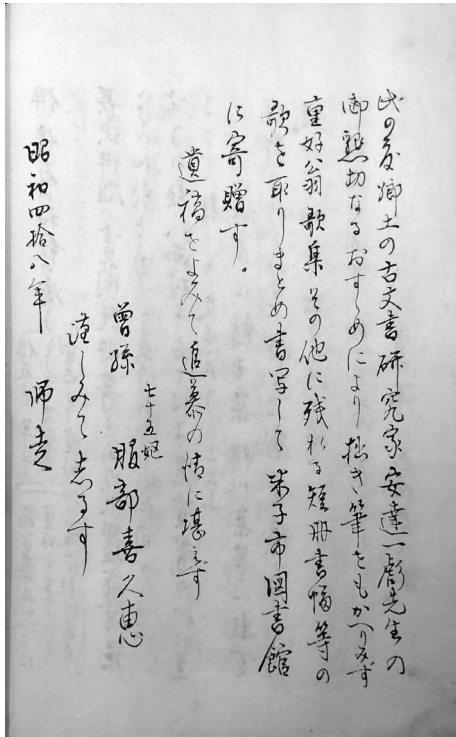 此の度郷土の古文書研究家安達一彪先生の
御懇切なるおすゝめにより拙き筆をもかへりみず
重好翁歌集その他に残れる短冊書幅等の
歌を取りまとめ書写して 米子市図書館
に寄贈す。
遺稿をよみて追慕の情に堪えず
曽孫 七十五媼 服部喜久恵
謹しみて志るす
昭和四拾八年 師走